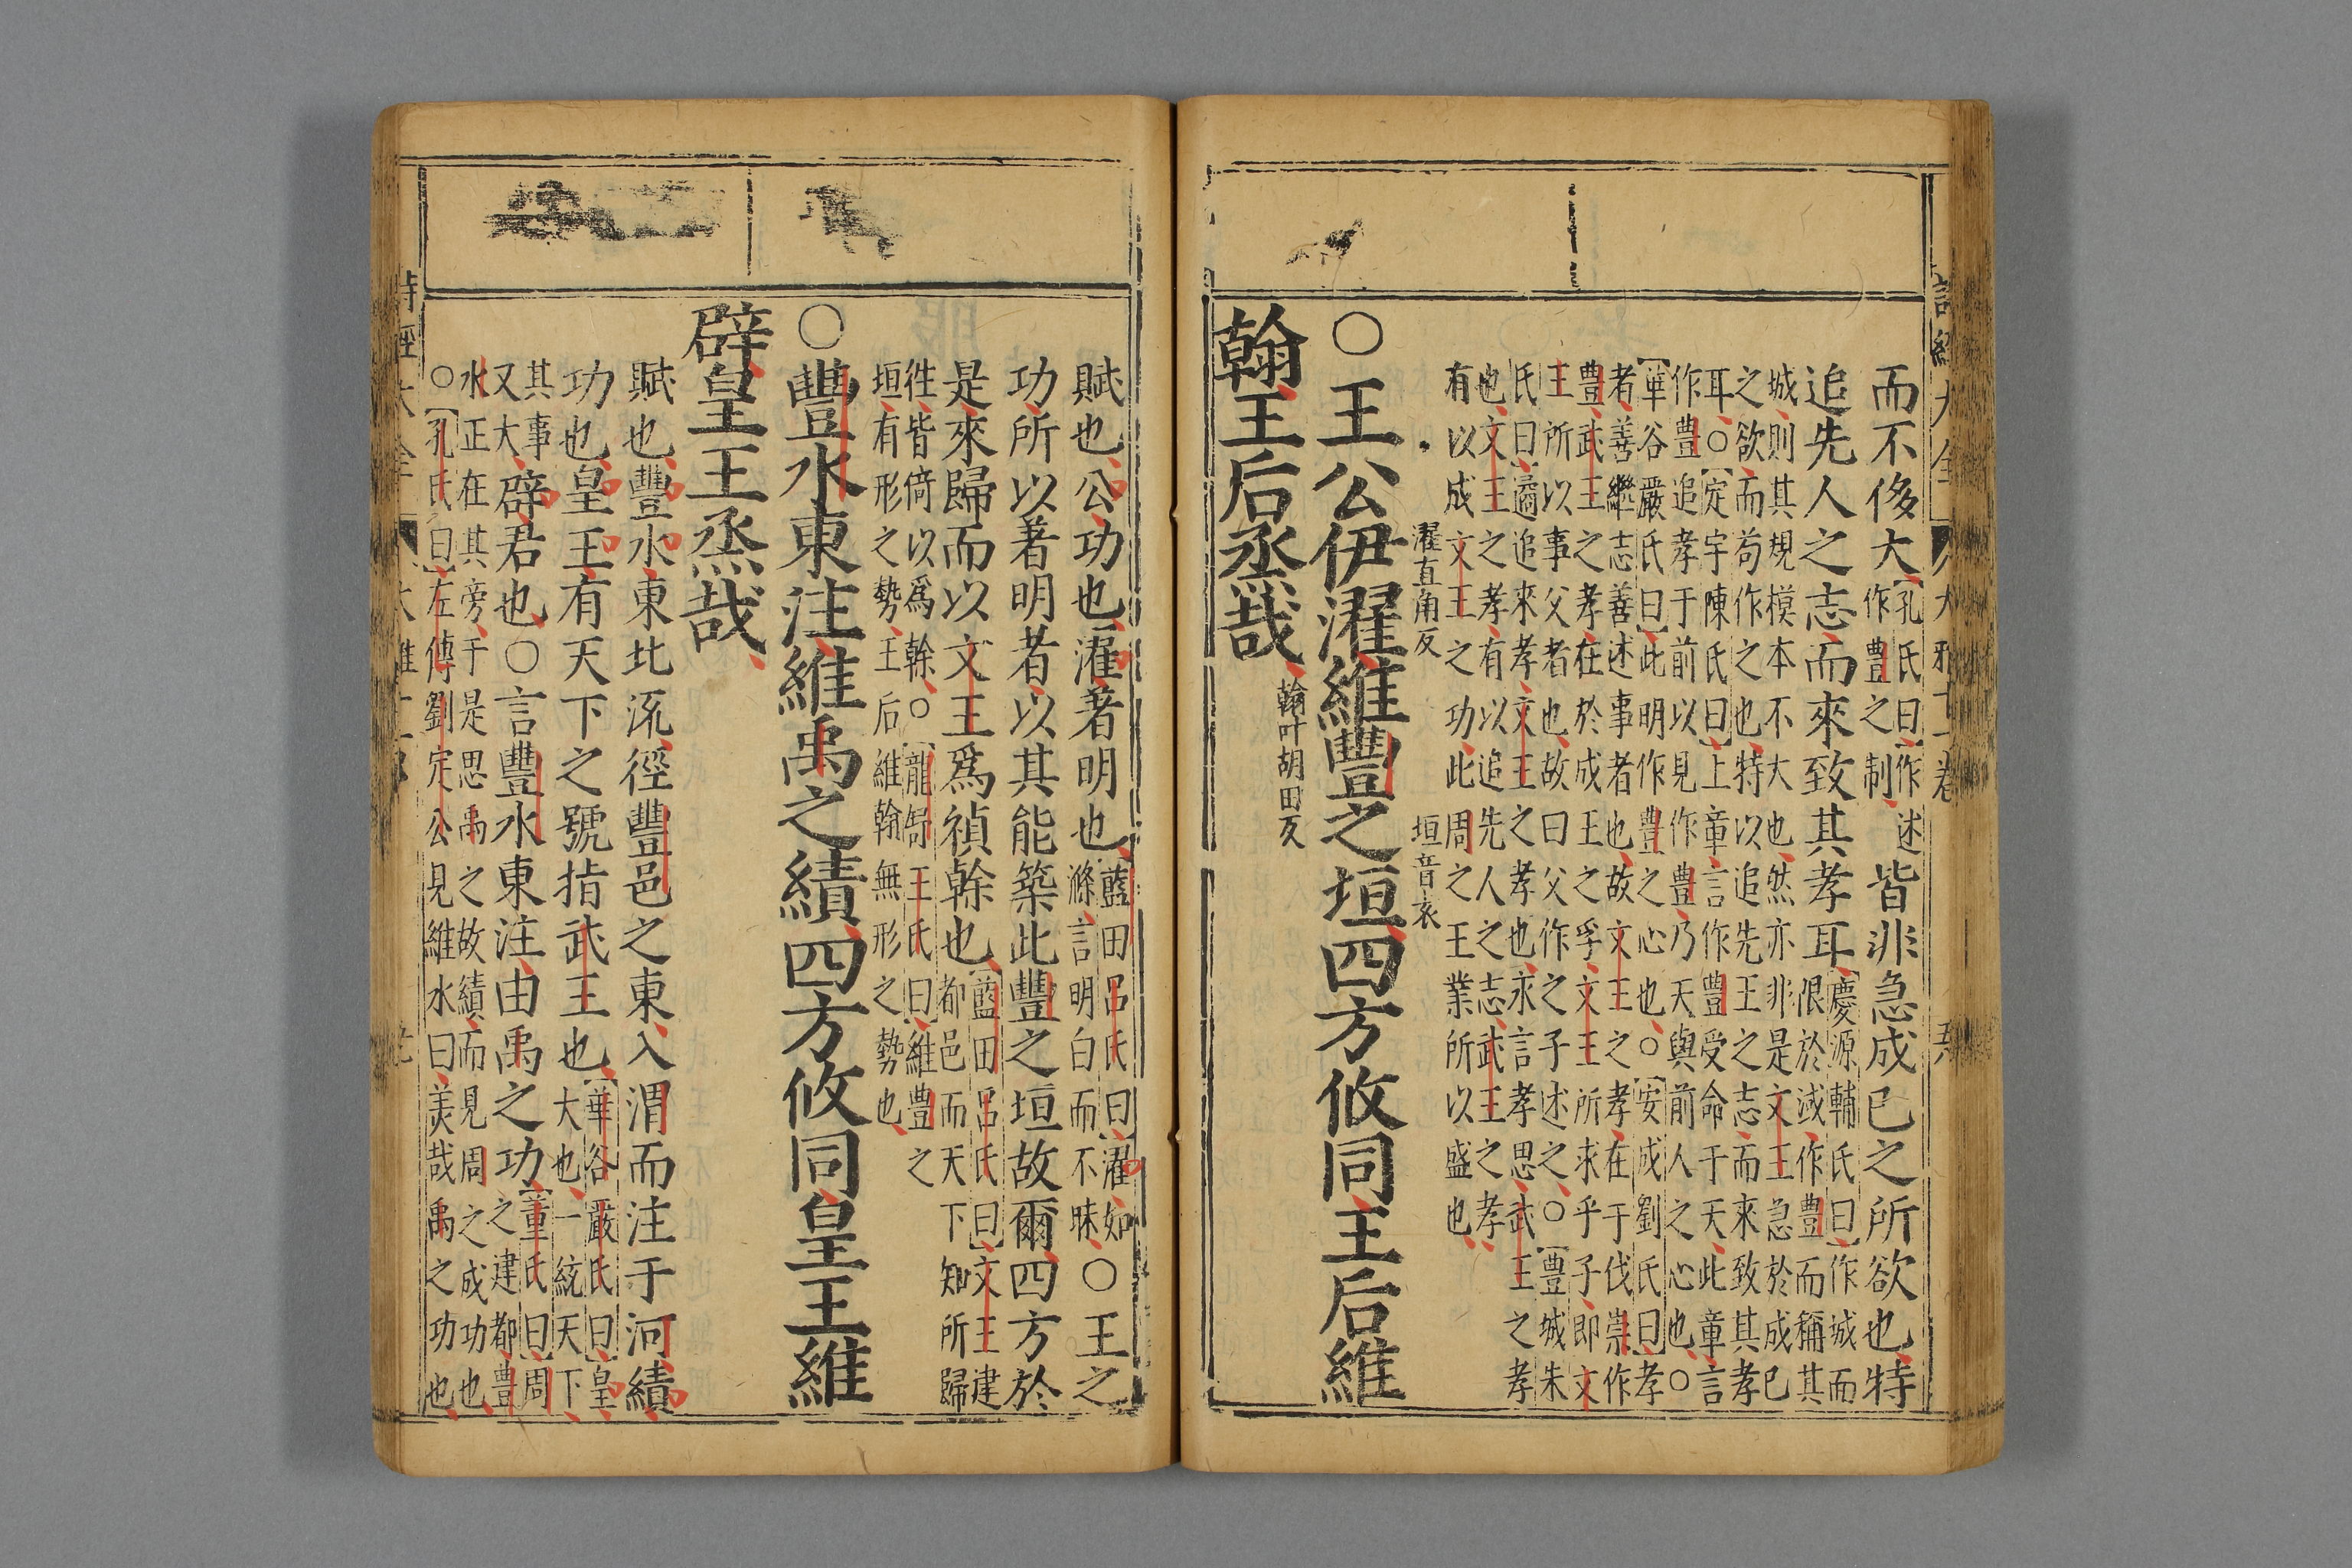 而不侈大孔氏曰作述
作豐之制皆非急成已之所欲也特
追先人之志而來致其孝耳慶源輔氏曰作城而
限於淢作豐而稱其
城則其規模本不大也然亦非是文王急於成已
之欲而苟作之也特以追先王之志而來致其孝
耳○定宇陳氏曰上章言作豐受命于天此章言
作豐追孝于前以見作豐乃天與前人之心也○
華谷嚴氏曰此明作豐之心也○安成劉氏曰孝
者善繼志善述事者也故文王之孝在于伐崇作
豐武王之孝在於成王之孚文王所求乎子即文
王所以事父者也故曰父作之子述之○豐城朱
氏曰遹追來孝文王之孝也永言孝思武王之孝
也文王之孝有以追先人之志武王之孝
有以成文王之功此周之王業所以盛也
濯直角反 垣音袁
○王公伊濯維豐之垣四方攸同王后維
翰王后烝哉
翰叶胡田反
賦也公功也濯著明也藍田呂氏曰濯如
滌言明白而不昧○王之
功所以著明者以其能築此豐之垣故爾四方於
是來歸而以文王爲禎幹也藍田呂氏曰文王建
都邑而天下知所歸
徃皆倚以爲幹○龍舒王氏曰維豐之
垣有形之勢王后維翰無形之勢也
○豐水東注維禹之績四方攸同皇王維
辟皇王烝哉
賦也豐水東北流徑豐邑之東入渭而注于河績
功也皇王有天下之號指武王也華谷嚴氏曰皇
大也一統天下
其事
又大辟君也○言豐水東注由禹之功董氏曰周
之建都豐
水正在其旁于是思禹之故績而見周之成功也
○孔氏曰左傳劉定公見維水曰美哉禹之功也